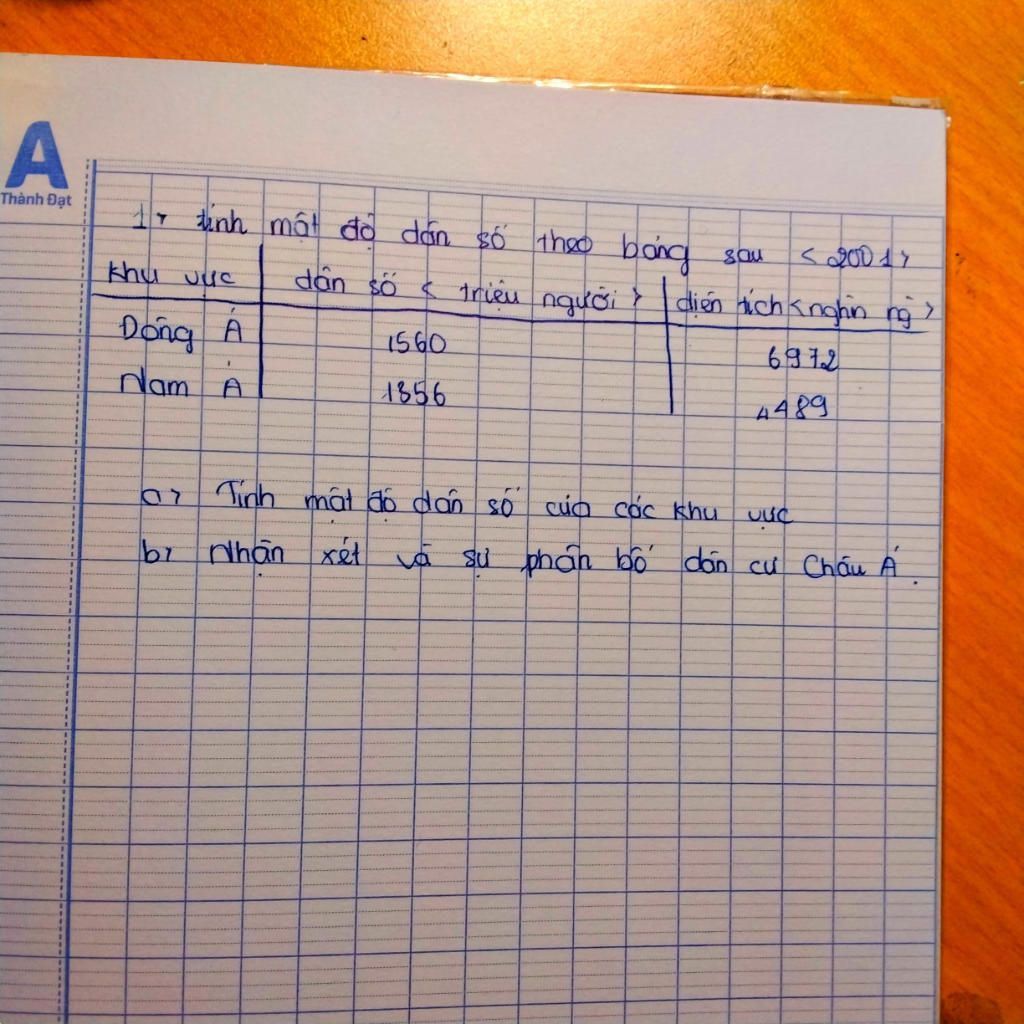 A
Thành Đạt
1, tính mật độ dân số theo bảng sau <2001>
Khu vực dân số <triệu người> diện tích <nghìn
Đông Á 1560 6972
Nam Á 1356 4489
a, Tính mật độ dân số của các khu vực
b, Nhận xét về sự phân bố dân cư Châu Á.